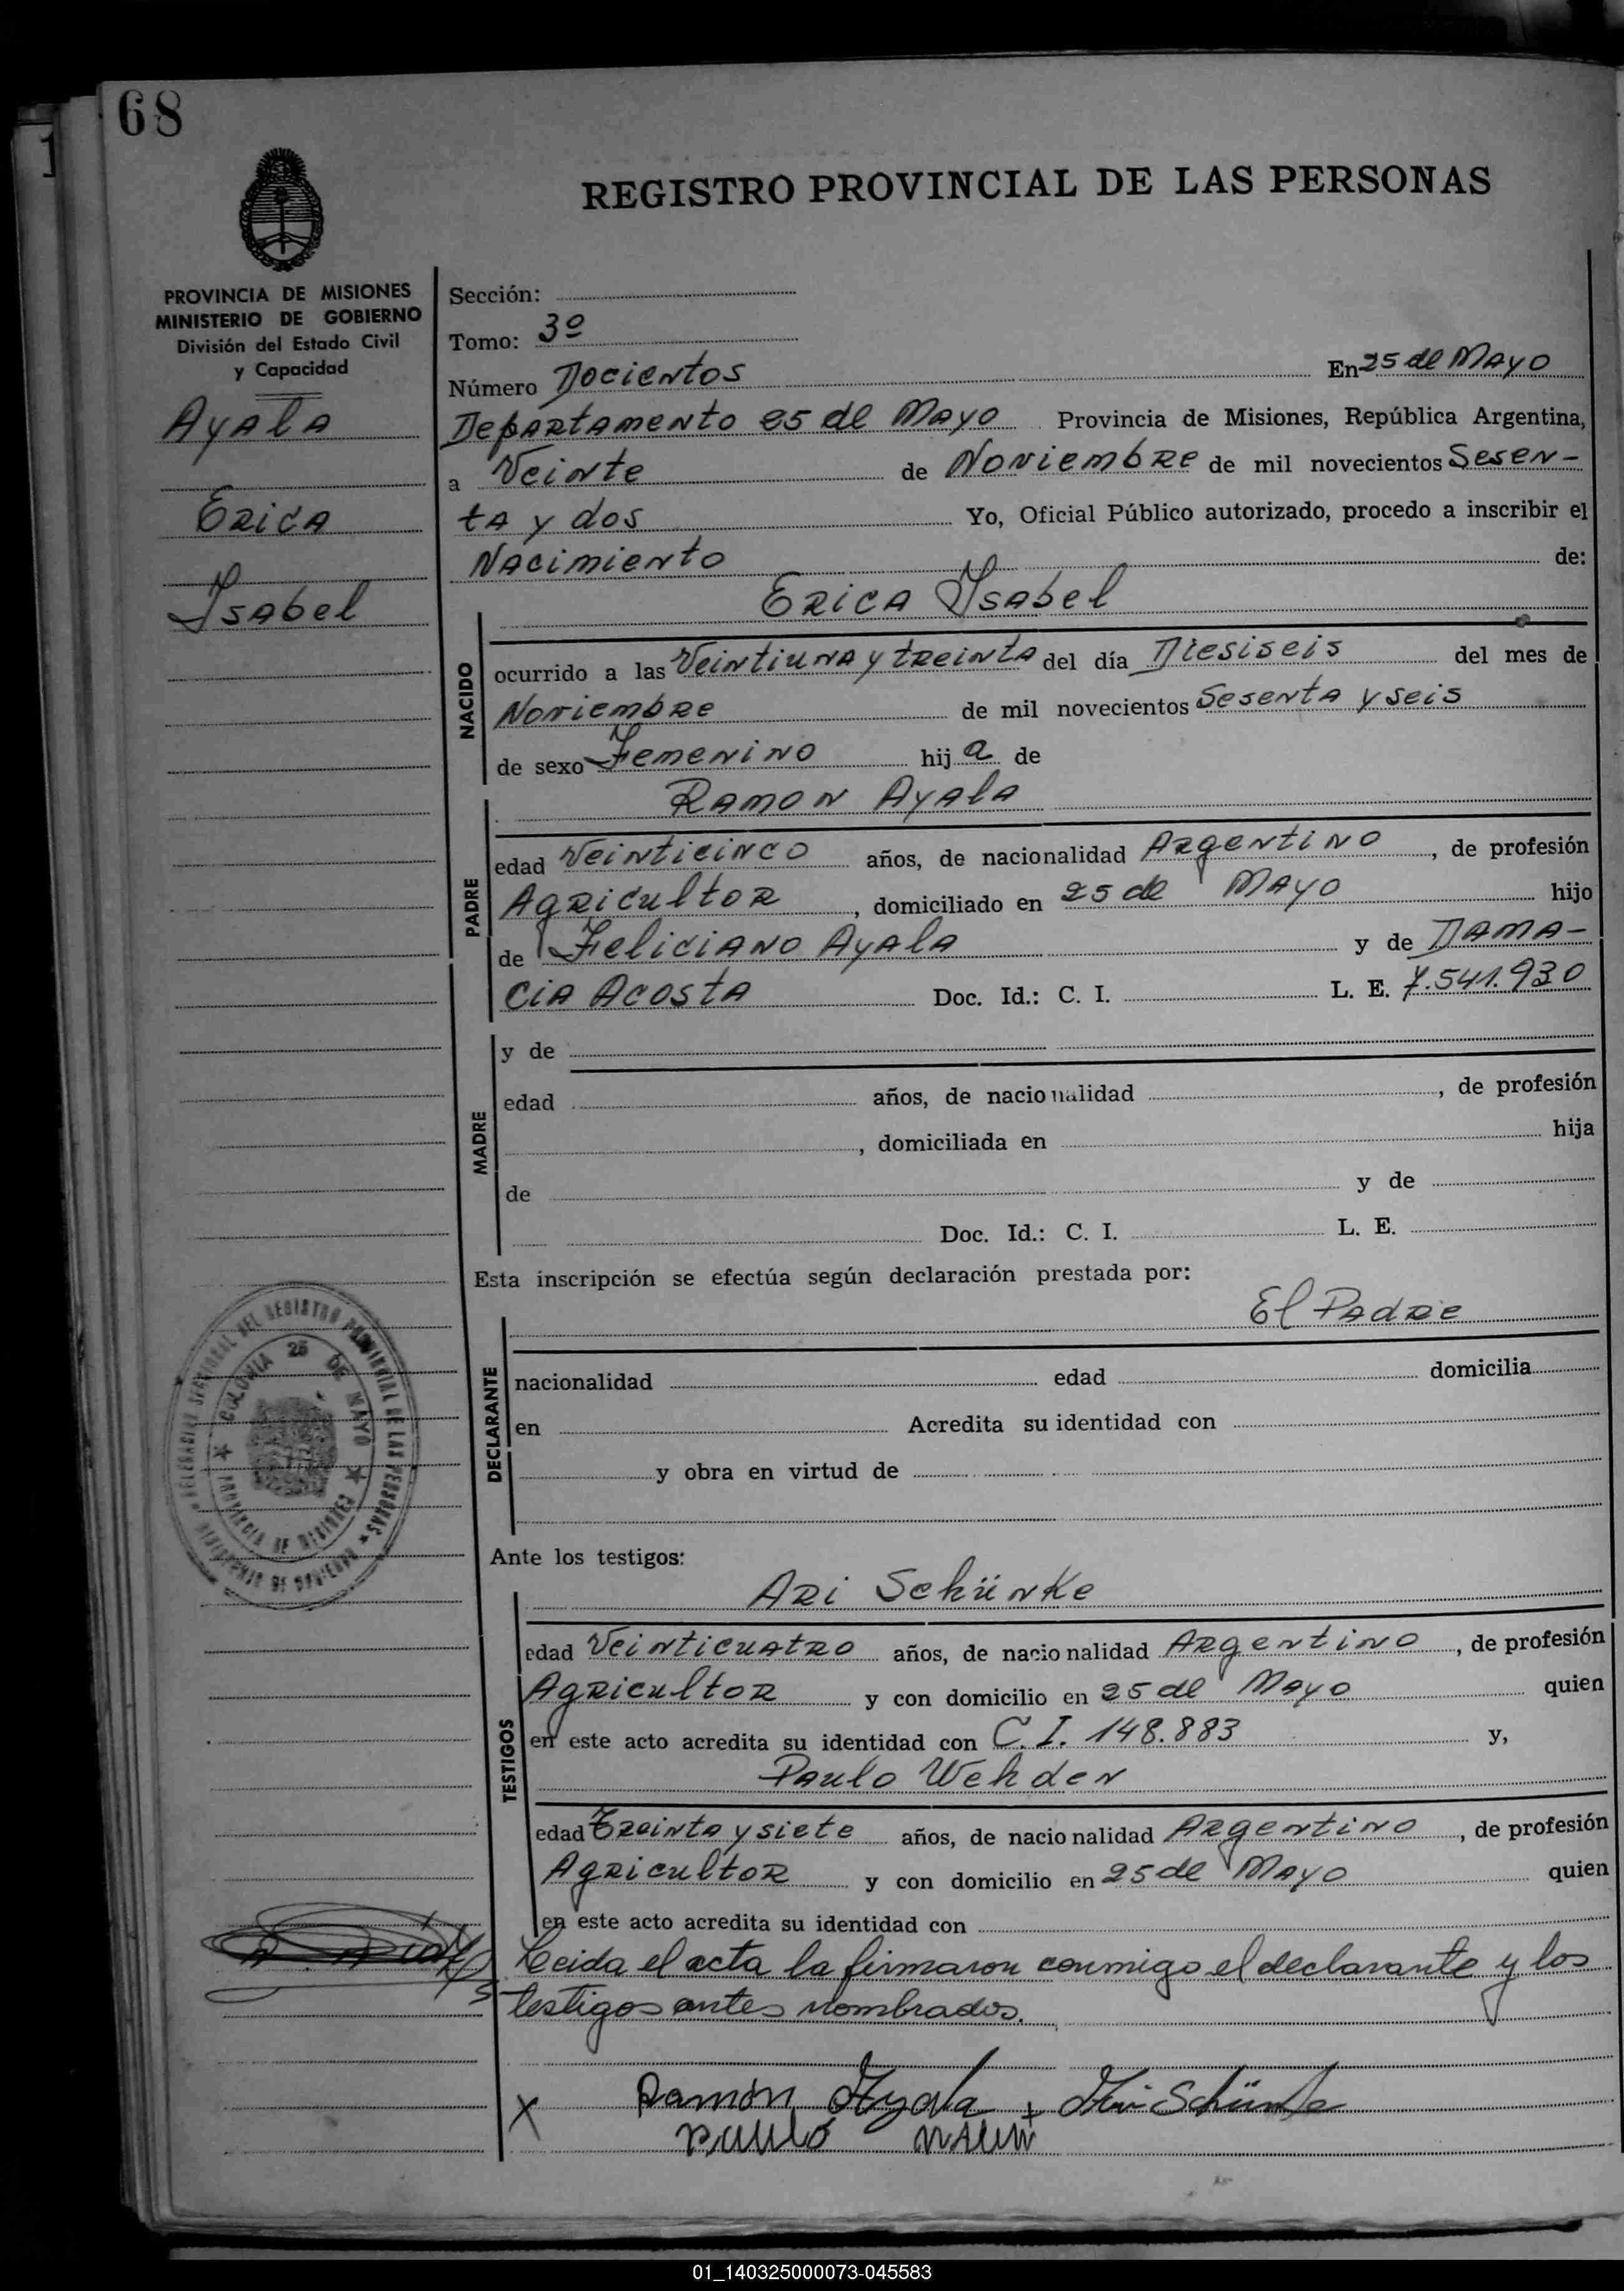 68
REGISTRO PROVINCIAL DE LAS PERSONAS
PROVINCIA DE MISIONES
MINISTERIO DE GOBIERNO
División del Estado Civil
y Capacidad
Ayala
Erica
Isabel
Sección:
Tomo: 3º
Número Docientos En 25 de Mayo
Departamento 25 de Mayo Provincia de Misiones, República Argentina,
a Veinte de Noviembre de mil novecientos Sesen-
ta y dos Yo, Oficial Público autorizado, procedo a inscribir el
Nacimiento de:
Erica Isabel
NACIDO
ocurrido a las Veintiuna y treinta del día Diesiseis del mes de
Noviembre de mil novecientos Sesenta y seis
de sexo Femenino hij a de
Ramon Ayala
PADRE
edad Veinticinco años, de nacionalidad Argentino, de profesión
Agricultor, domiciliado en 25 de Mayo hijo
de Feliciano Ayala y de Dama-
cia Acosta Doc. Id.: C. I. L. E. 7.541.930
MADRE
y de
edad años, de nacionalidad , de profesión
, domiciliada en hija
de y de
Doc. Id.: C. I. L. E.
Esta inscripción se efectúa según declaración prestada por:
El Padre
DECLARANTE
nacionalidad edad domicilia
en Acredita su identidad con
y obra en virtud de
DELEGACION SECCIONAL DEL REGISTRO PROVINCIAL DE LAS PERSONAS
MINISTERIO DE GOBIERNO
COLONIA 25 DE MAYO
PROVINCIA DE MISIONES
Ante los testigos:
Ari Schünke
TESTIGOS
edad Veinticuatro años, de nacionalidad Argentino, de profesión
Agricultor y con domicilio en 25 de Mayo quien
en este acto acredita su identidad con C. I. 148.883 y,
Paulo Wehden
edad Treinta y siete años, de nacionalidad Argentino, de profesión
Agricultor y con domicilio en 25 de Mayo quien
en este acto acredita su identidad con
Leida el acta la firmaron conmigo el declarante y los
testigos antes nombrados.
X Ramón Ayala + Ari Schünke
Paulo
01_140325000073-045583